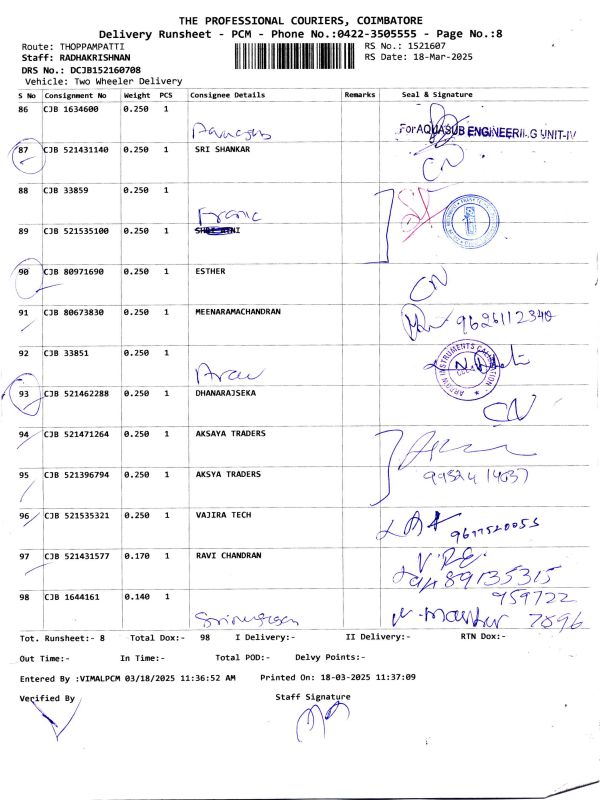 THE PROFESSIONAL COURIERS, COIMBATORE
Delivery Runsheet - PCM - Phone No.:0422-3505555 - Page No.:8
Route: THOPPAMPATTI
RS No.: 1521607
Staff: RADHAKRISHNAN
RS Date: 18-Mar-2025
DRS No.: DCJB152160708
Vehicle: Two Wheeler Delivery
S No Consignment No Weight PCS Consignee Details Remarks Seal & Signature
86 CJB 1634600 0.250 1
For AQUASUB ENGINEERING UNIT-IV
87 CJB 521431140 0.250 1 SRI SHANKAR
CN
88 CJB 33859 0.250 1
89 CJB 521535100 0.250 1
90 CJB 80971690 0.250 1 ESTHER
CN
91 CJB 80673830 0.250 1 MEENARAMACHANDRAN
9626112340
92 CJB 33851 0.250 1
93 CJB 521462288 0.250 1 DHANARAJSEKA
CN
94 CJB 521471264 0.250 1 AKSAYA TRADERS
95 CJB 521396794 0.250 1 AKSYA TRADERS
96 CJB 521535321 0.250 1 VAJIRA TECH
97 CJB 521431577 0.170 1 RAVI CHANDRAN
89135315
98 CJB 1644161 0.140 1
959722
7896
Tot. Runsheet:- 8 Total Dox:- 98 I Delivery:- II Delivery:- RTN Dox:-
Out Time:- In Time:- Total POD:- Delvy Points:-
Entered By :VIMALPCM 03/18/2025 11:36:52 AM Printed On: 18-03-2025 11:37:09
Verified By Staff Signature